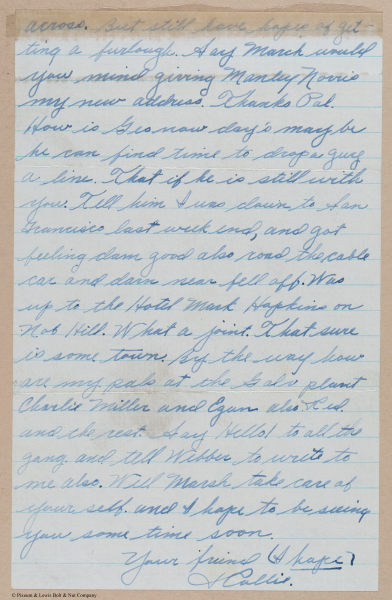 across. But still have hopes of get-
ting a furlough. Say Marsh would
you mind giving Manley Norris
my new address. Thanks Pal.
How is Geo now day's maybe
he can find time to drop a guy
a line. That if he is still with
you. Tell him I was down to San
Francisco last week end, and got
feeling dam good also road the cable
car and dam near fell off. Was
up to the Hotel Mark Hopkins on
Nob Hill. What a joint. That sure
is some town. By the way how
are my pals at the Galv plant
Charlie Miller and Egan also Red.
and the rest. Say Hello! to all the
gang. and tell Webber to write to
me also. Well Marsh take care of
your self. and I hope to be seeing
you some time soon.
Your friend (I hope)
Collie.
© Pixnom & Lewis Bolt & Nut Company